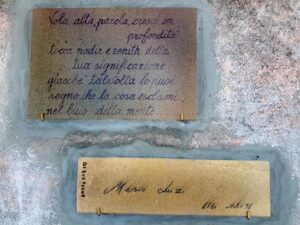 Vola alta, parola, cresci in
profondità
tocca nadir e zenith della
tua significazione
giacché talvolta lo puoi
sogno che la cosa esclami
nel buio della mente
Mario Luzi